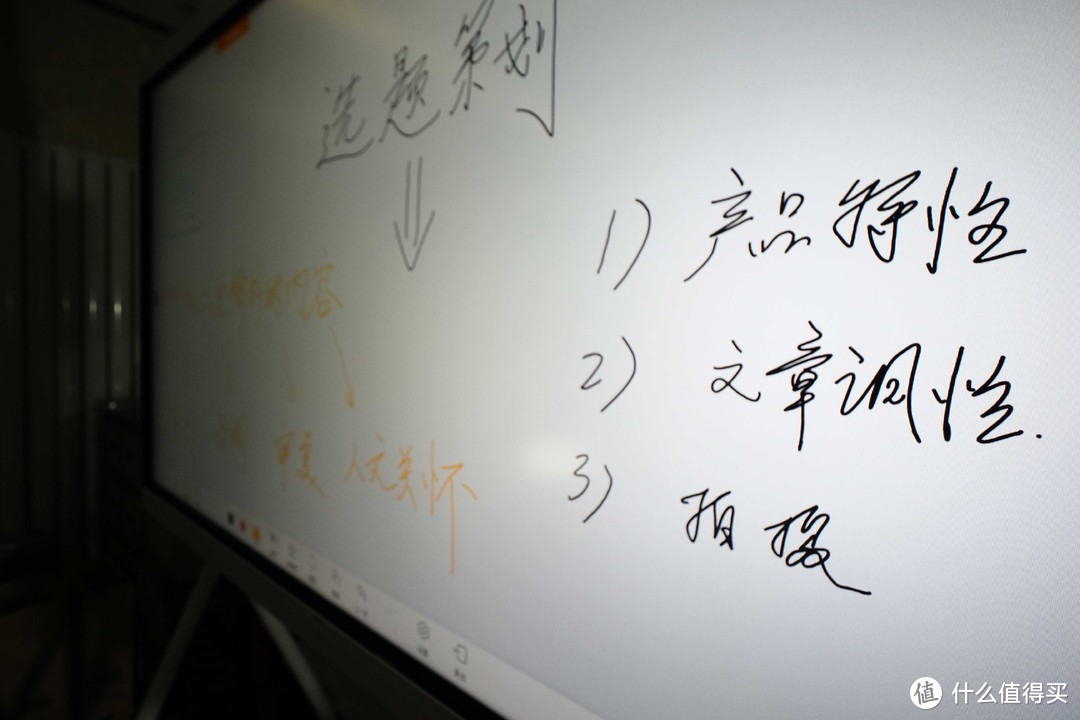 选题策划
1) 产品特性
2) 文章调性.
3) 拍摄
内容
人文关怀
值 什么值得买